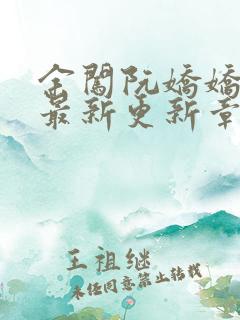 金闺阮嬌嬌
最新更新章
王祖继
未经同意禁止转载